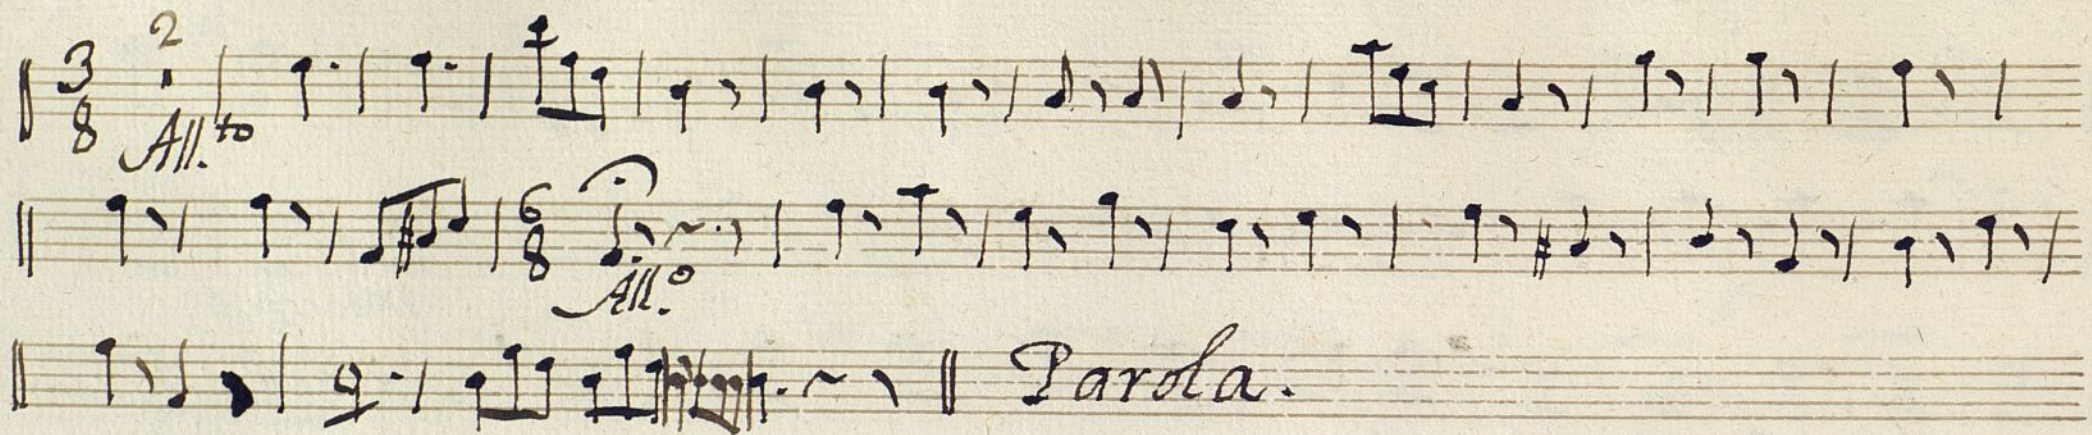 2
3
8
All.to
6
8
All.o
Parola.